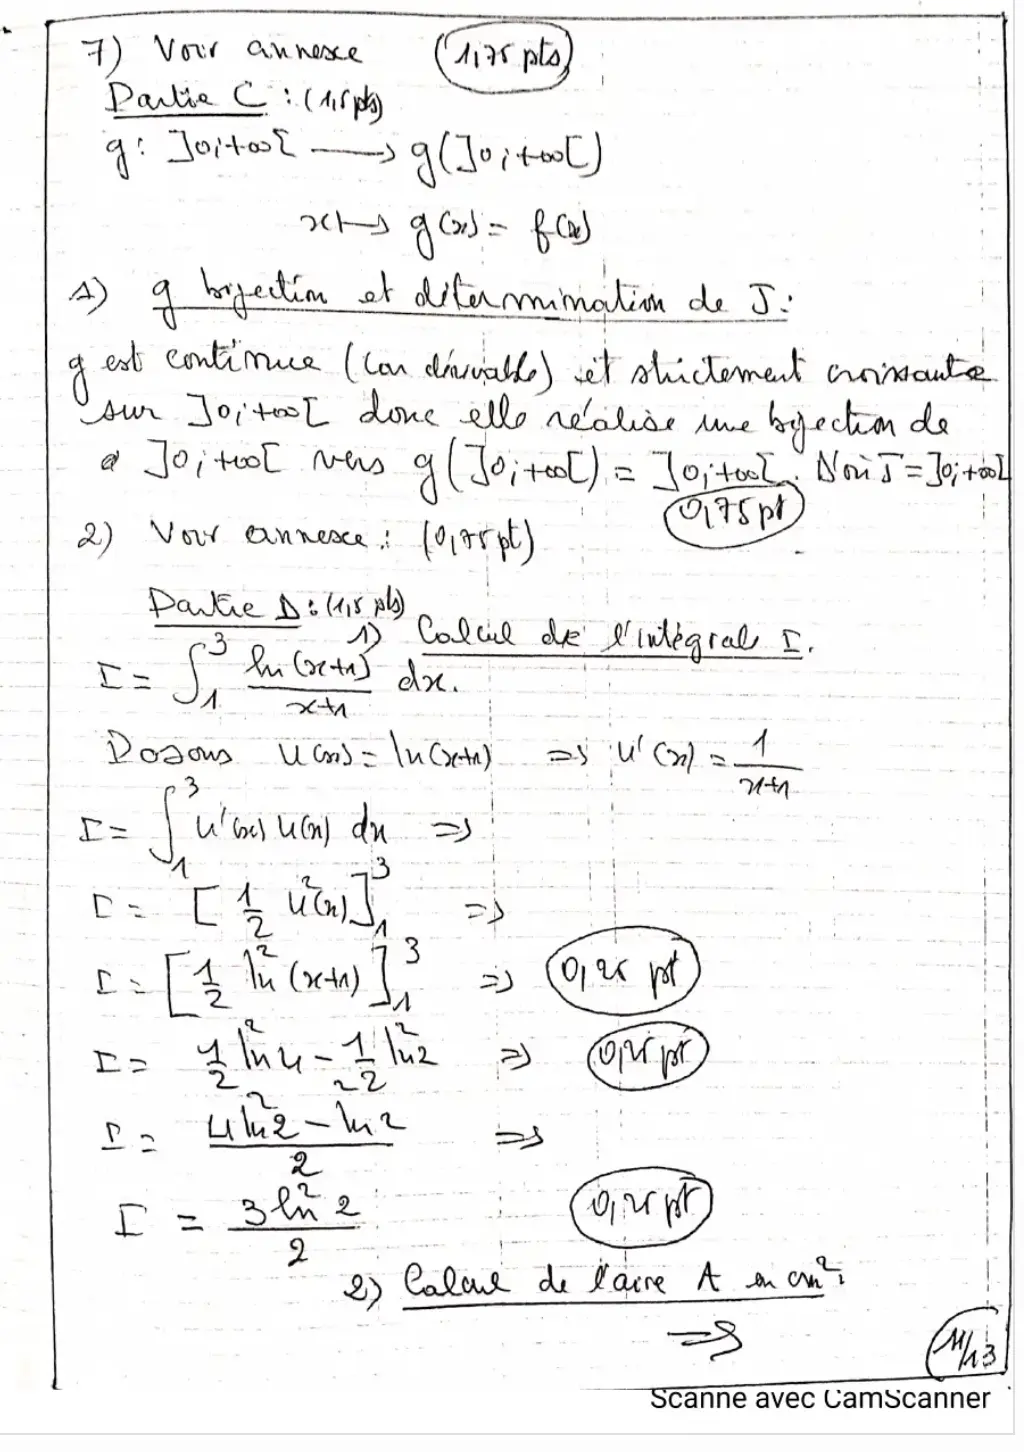 7) Voir annexe (1,75 pts)
Partie C : (1,5 pts)
g : ]0;+∞[ ⟶ g(]0;+∞[)
x ↦ g(x) = f(x)
1) g bijection et détermination de J :
g est continue (car dérivable) et strictement croissante
sur ]0;+∞[ donc elle réalise une bijection de
]0;+∞[ vers g(]0;+∞[) = ]0;+∞[. D'où J = ]0;+∞[
0,75 pt
2) Voir annexe : (0,75 pt)
Partie D : (1,5 pts)
1) Calcul de l'intégrale I.
I = ∫₁³ ln(x+1)/(x+1) dx.
Posons u(x) = ln(x+1) ⇒ u'(x) = 1/(x+1)
I = ∫₁³ u'(x) u(x) dx ⇒
I = [1/2 u²(x)]₁³ ⇒
I = [1/2 ln²(x+1)]₁³ ⇒ 0,25 pt
I = 1/2 ln²4 - 1/2 ln²2 ⇒ 0,25 pt
I = (4ln²2 - ln²2)/2 ⇒
I = 3ln²2/2 0,25 pt
2) Calcul de l'aire A en cm² :
⇒
11/13
Scanné avec CamScanner